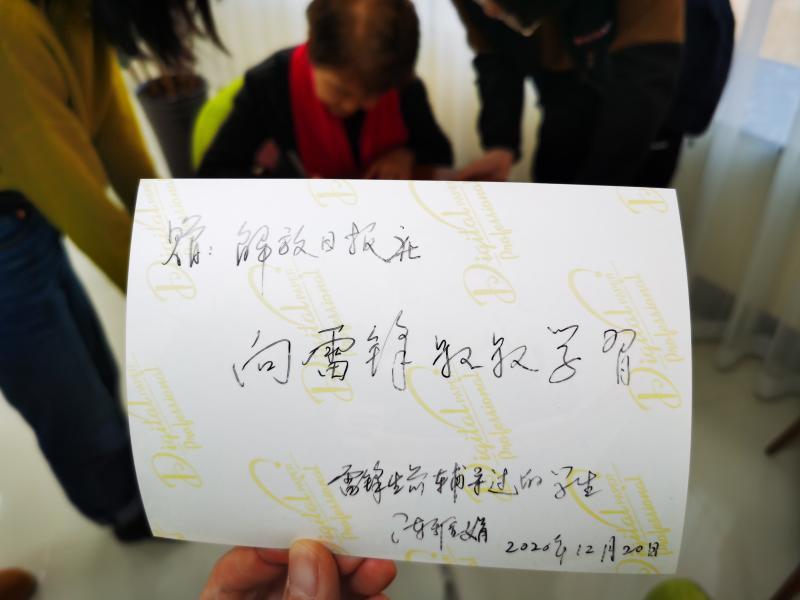 赠：解放日报社
向雷锋叔叔学习
雷锋生前辅导过的学生
陈雅娟
2020年12月20日
Digital
Professional